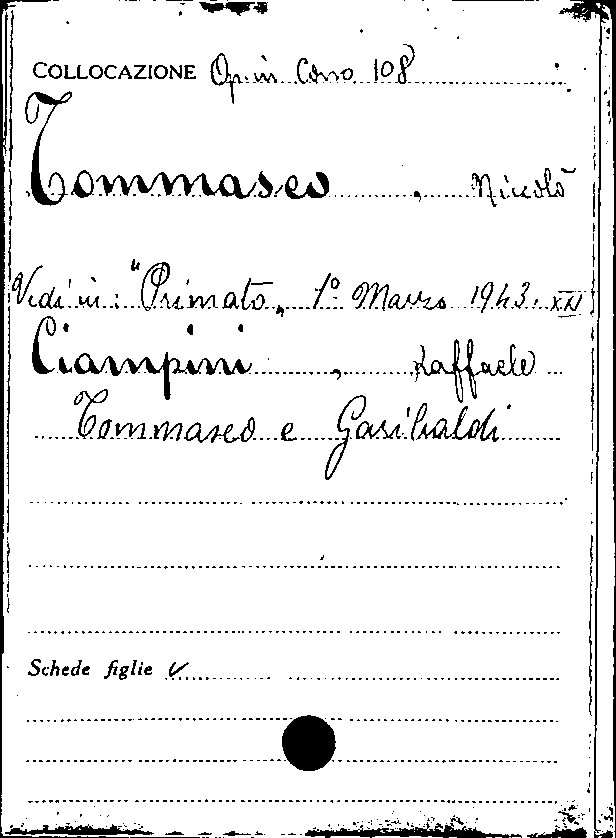 COLLOCAZIONE Op. in Corso 108
Tommaseo, Niccolò
Vedi in: "Primato„ 1º Marzo 1943. XXI
Ciampini, Raffaele
Tommaseo e Garibaldi
Schede figlie ✓